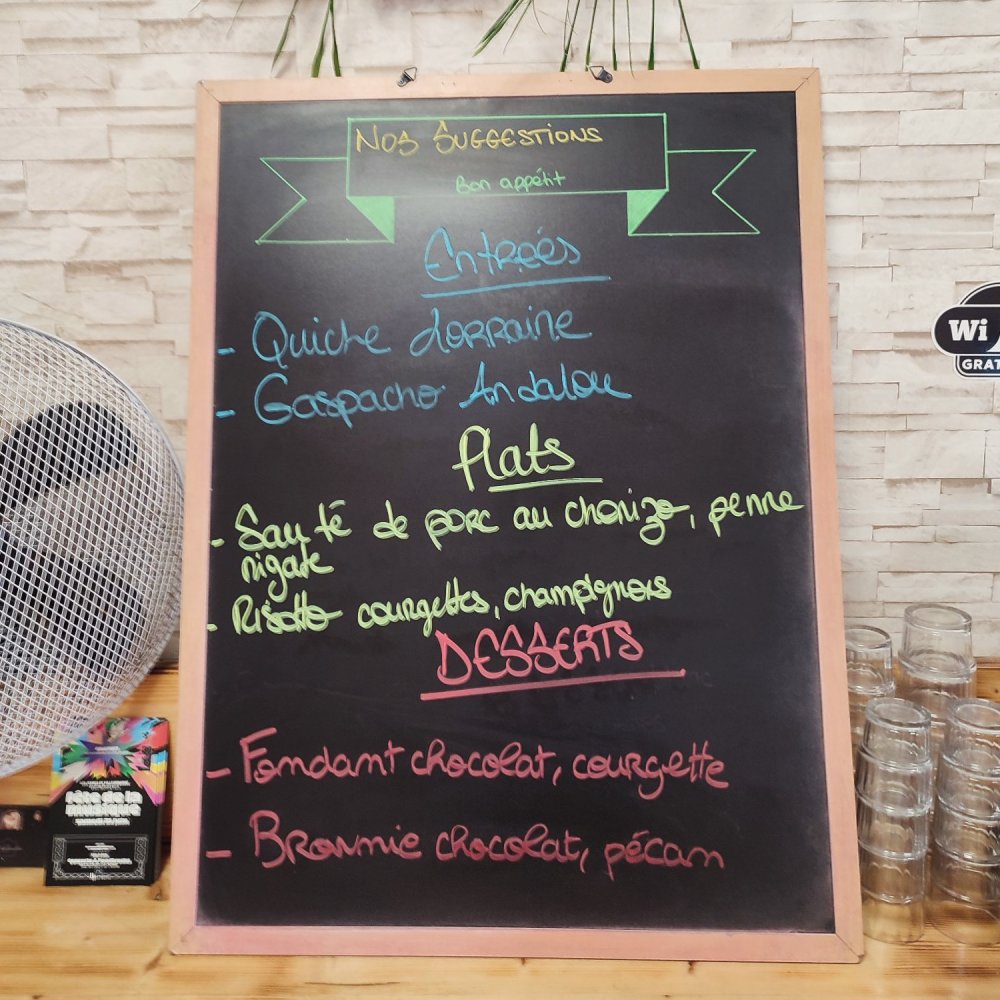 Nos Suggestions
Bon appétit
Entreés
- Quiche Lorraine
- Gaspacho Andalou
Plats
- Sauté de porc au chorizo, penne
rigate
- Risotto courgettes, champignons
DESSERTS
- Fondant chocolat, courgette
- Brownie chocolat, pécan
Wi
GRAT
Fête de la
musique